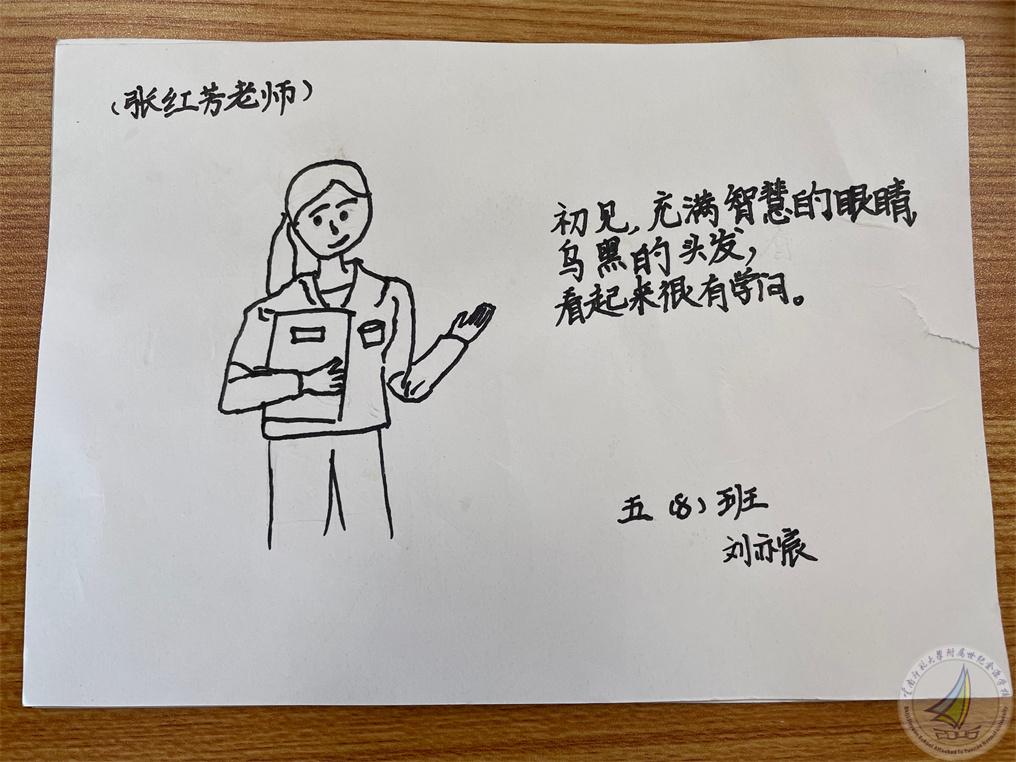 （张红芳老师）
初见，充满智慧的眼睛，
乌黑的头发，
看起来很有学问。
五（8）班
刘亦宸